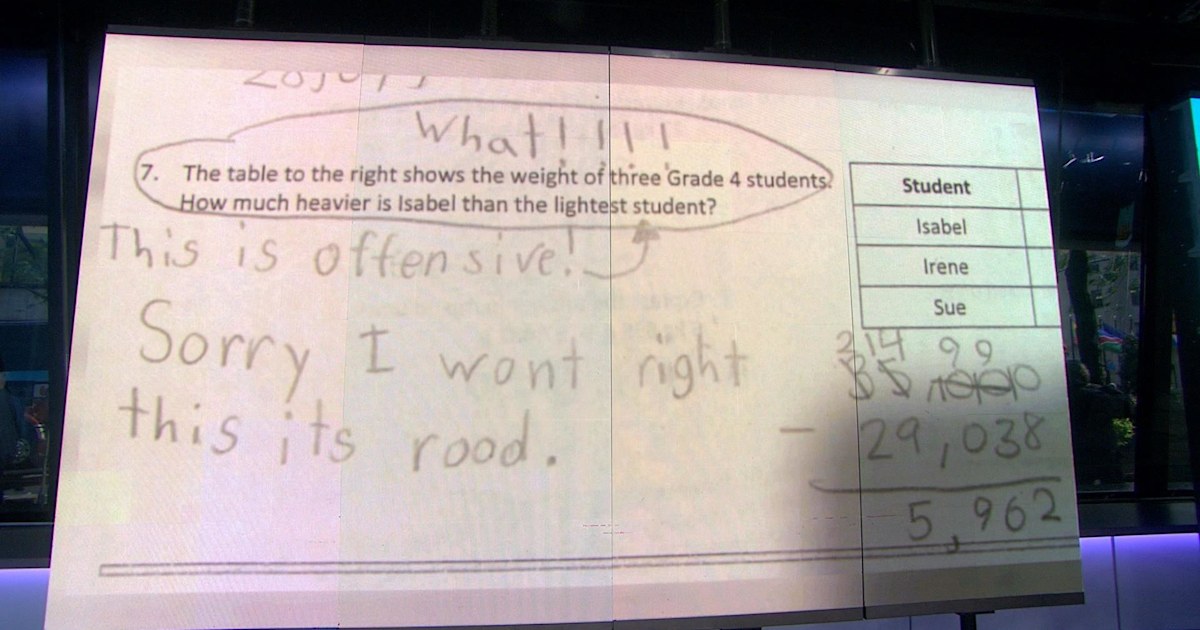 What!!!!
7. The table to the right shows the weight of three Grade 4 students.
How much heavier is Isabel than the lightest student?
This is offensive!
Sorry I wont right
this its rood.
Student
Isabel
Irene
Sue
2 14 9 9
35 000
- 29,038
5,962